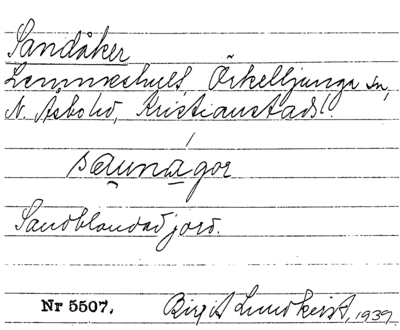 Sandåker
Lemmeshult, Örkelljunga sn,
N. Åsbo hd, Kristianstads l.
saunagor
Sandblandad jord.
Nr 5507. Birgit Lundkvist, 1939